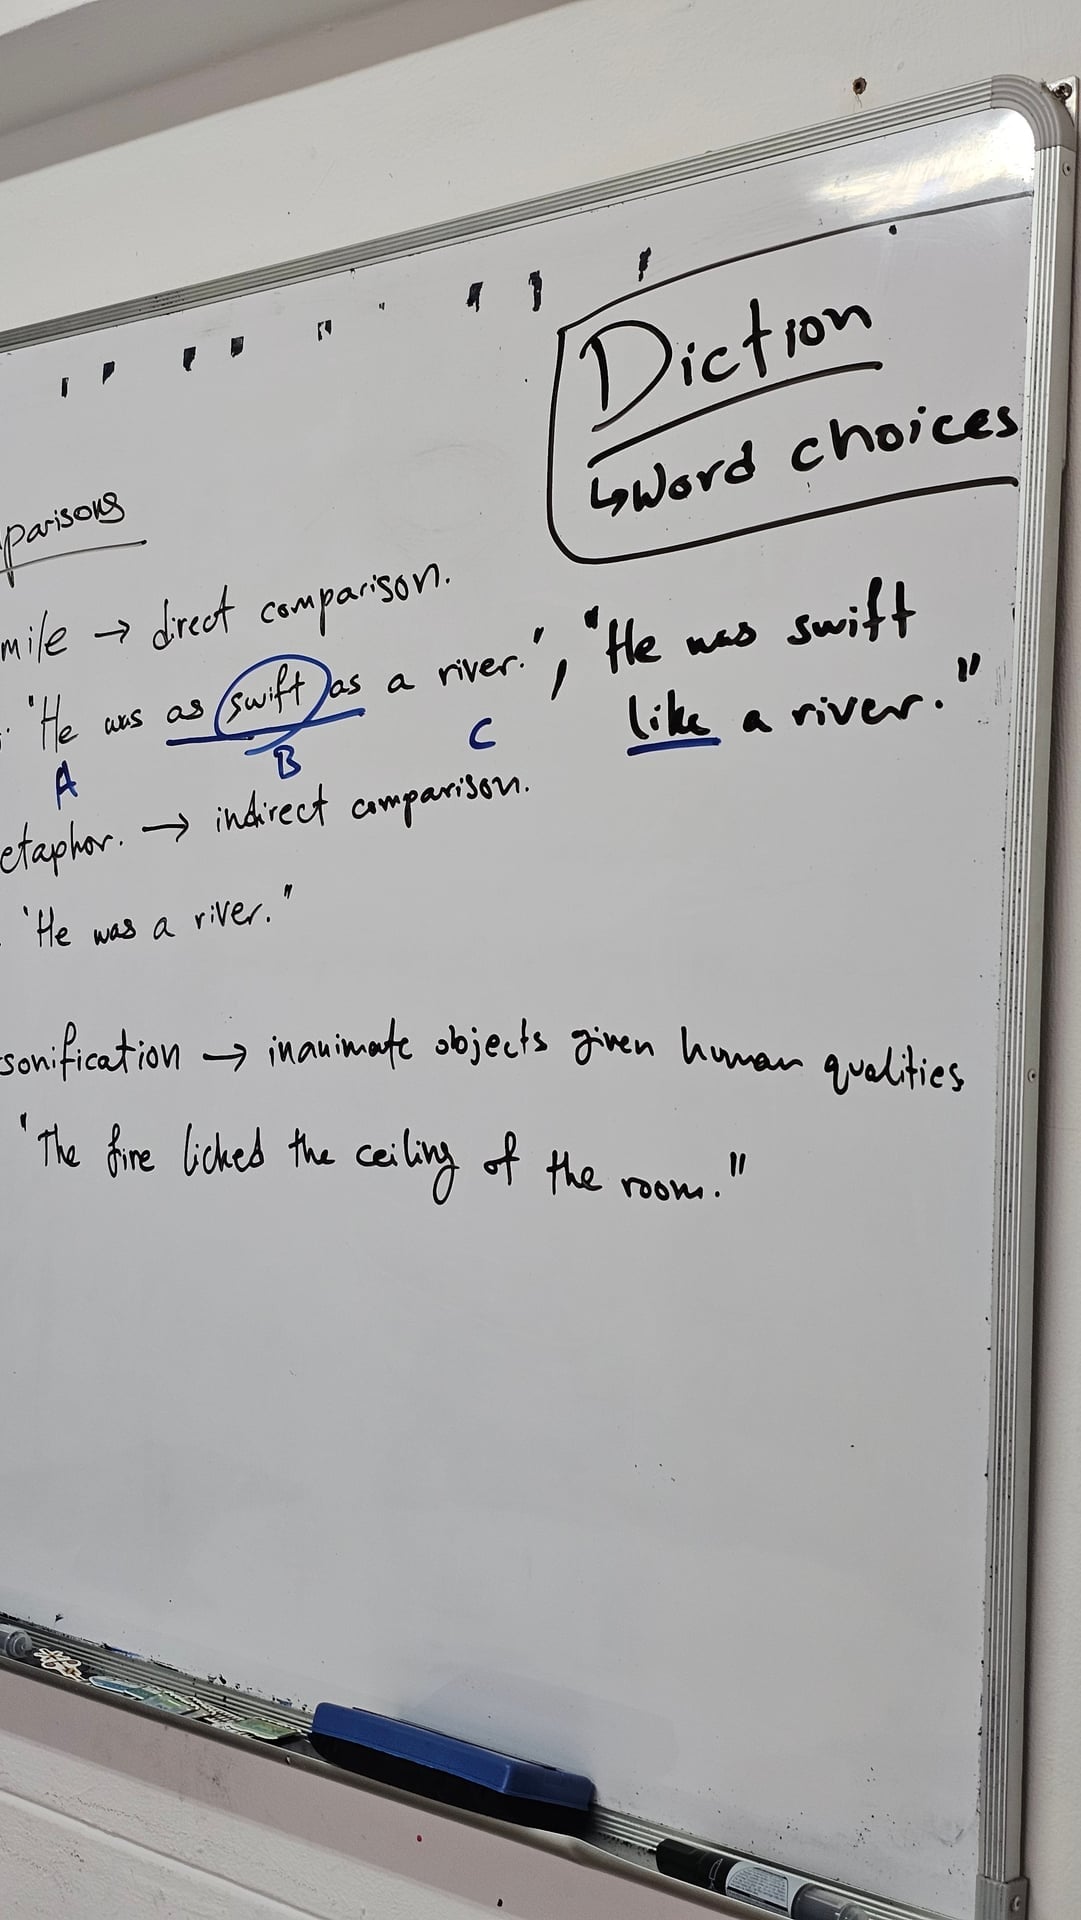 Diction
↳Word choices
parisons
mile → direct comparison.
"He was as swift as a river.", "He was swift
like a river."
A B C
etaphor. → indirect comparison.
"He was a river."
sonification → inanimate objects given human qualities
"The fire licked the ceiling of the room."